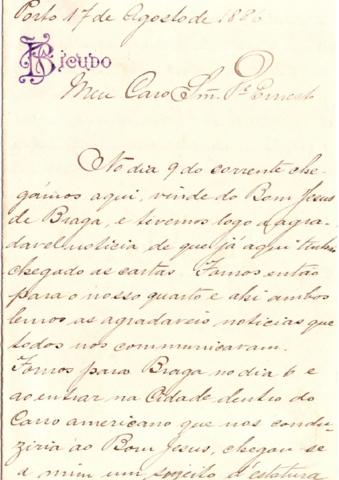 Porto 17 de Agosto de 1886
BICUDO
Meu Caro Snr. Pe. Ernesto
No dia 9 do corrente che-
gámos aqui, vindo do Bom Jesus
de Braga, e tivemos logo a agra-
davel noticia, de que já aqui tinham
chegado as cartas. Fomos então
para o nosso quarto e ahi ambos
lemos as agradaveis noticias que
todos nos communicaram.
Fomos para Braga no dia 6 e
ao entrar na Cidade dentro do
Carro americano que nos condu-
ziria ao Bom Jesus, chegou-se
a mim um sujeito d'estatura